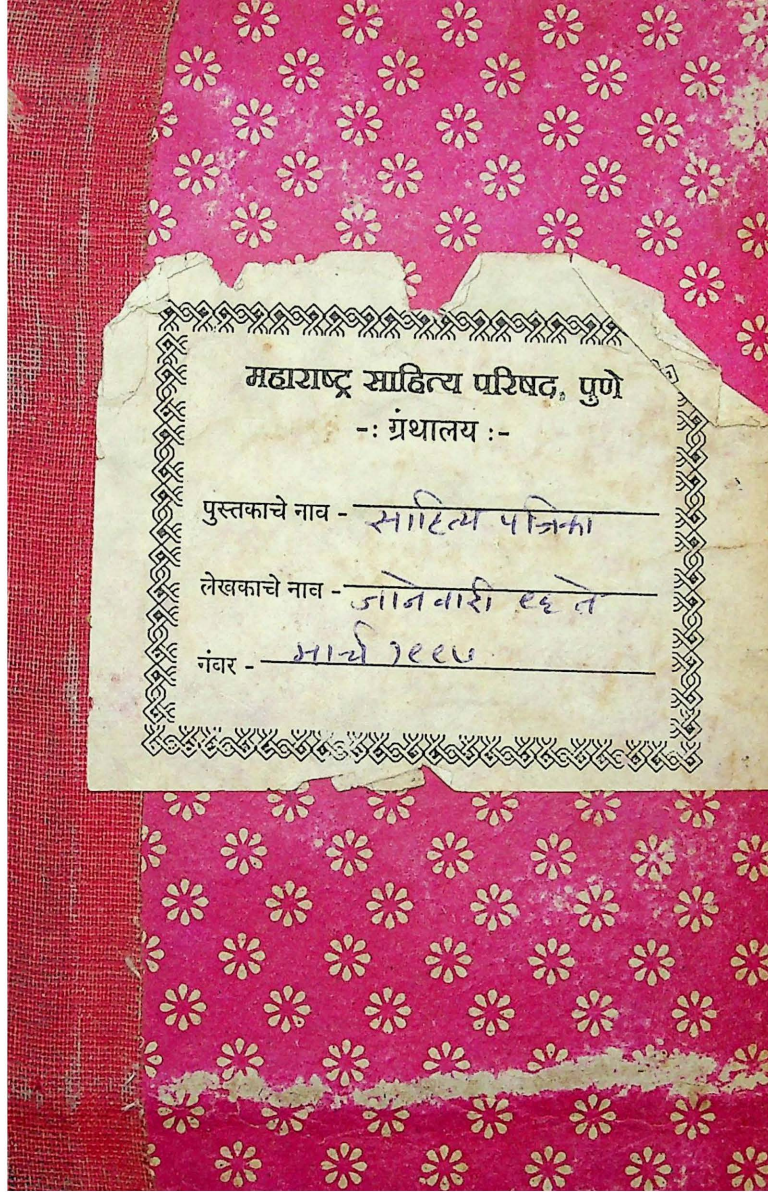 महाराष्ट्र साहित्य परिषद, पुणे
-: ग्रंथालय :-
पुस्तकाचे नाव - साहित्य पत्रिका
लेखकाचे नाव - जानेवारी ९६ ते
नंबर - मार्च १९९७